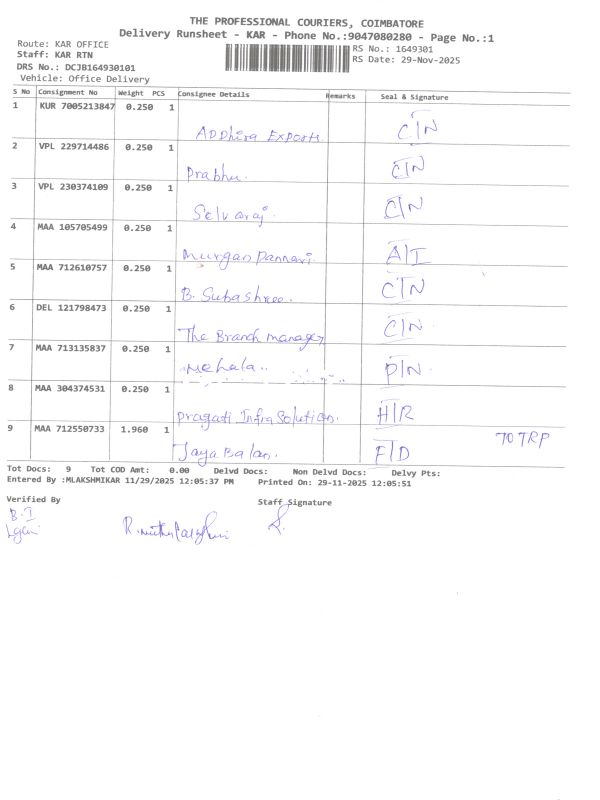 THE PROFESSIONAL COURIERS, COIMBATORE
Delivery Runsheet - KAR - Phone No.:9047080280 - Page No.:1
Route: KAR OFFICE
Staff: KAR RTN
DRS No.: DCJB164930101
Vehicle: Office Delivery
RS No.: 1649301
RS Date: 29-Nov-2025
S No Consignment No Weight PCS Consignee Details Remarks Seal & Signature
1 KUR 7005213847 0.250 1 Addhira Exports C/N
2 VPL 229714486 0.250 1 Prabhu. C/N
3 VPL 230374109 0.250 1 Selvaraj. C/N
4 MAA 105705499 0.250 1 Murgan Pannari. A/I
5 MAA 712610757 0.250 1 B. Subashree. C/N
6 DEL 121798473 0.250 1 The Branch manager C/N
7 MAA 713135837 0.250 1 Mehala.. P/N
8 MAA 304374531 0.250 1 Pragati Infra Solution. H/R
9 MAA 712550733 1.960 1 Jaya Balan. F/D TO TRP
Tot Docs: 9 Tot COD Amt: 0.00 Delvd Docs: Non Delvd Docs: Delvy Pts:
Entered By :MLAKSHMIKAR 11/29/2025 12:05:37 PM Printed On: 29-11-2025 12:05:51
Verified By Staff Signature